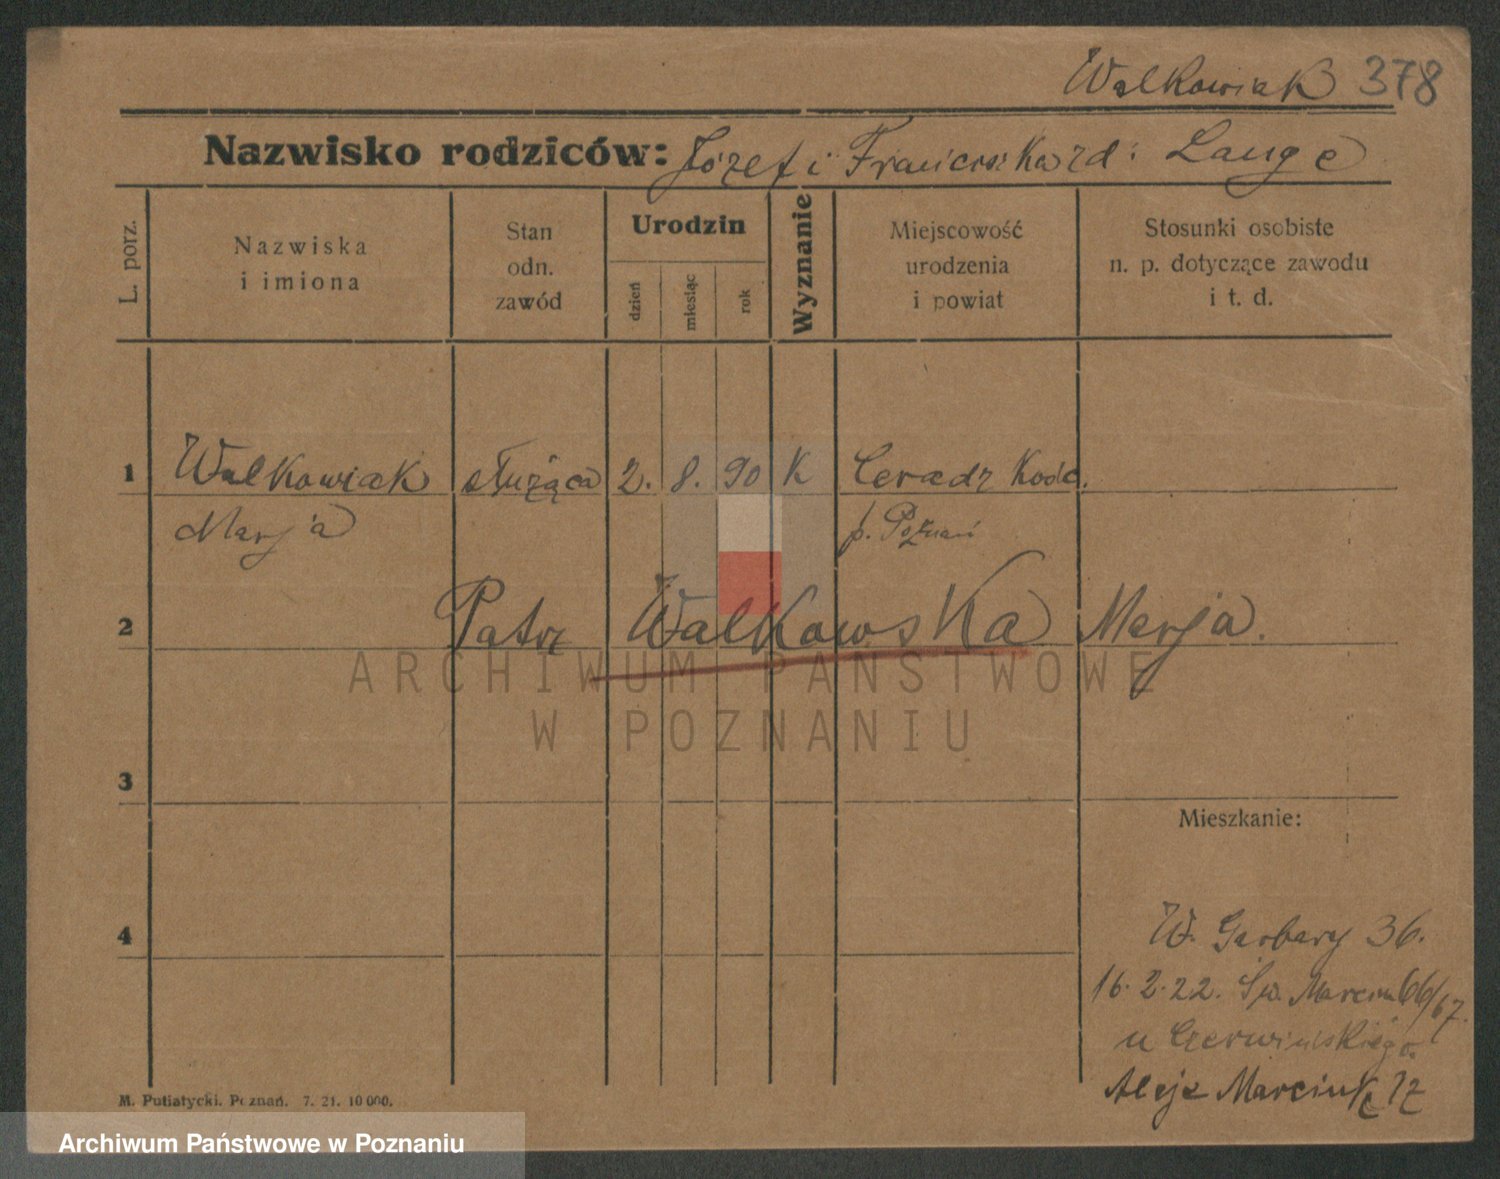 Walkowiak 378
Nazwisko rodziców: Józef i Franciszka zd: Lange
L. porz.
Nazwiska
i imiona
Stan
odn.
zawód
Urodzin
dzień
miesiąc
rok
Wyznanie
Miejscowość
urodzenia
i powiat
Stosunki osobiste
n. p. dotyczące zawodu
i t. d.
1 Walkowiak służąca 2. 8. 90 K Ceradz Kośc.
Marja p. Poznań
2 Patrz Walkowska Marja.
ARCHIWUM PAŃSTWOWE
W POZNANIU
3
Mieszkanie:
4
W. Garbary 36.
16.2.22. Św. Marcin 66/67.
u Czerwińskiego.
Aleje Marcink
M. Putiatycki. Poznań. 7. 21. 10 000.
Archiwum Państwowe w Poznaniu